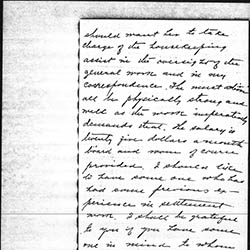 should want her to take
charge of the housekeeping
assist in the oversight of the
general work and in my
correspondence. She must above
all be physically strong and
well as the work imperatively
demands that. The salary is
twenty five dollars a month
board and room of course
provided. I should like
to have some one who has
had some previous ex-
perience in settlement
work. I should be grateful
to you if you have some
one in mind to whom